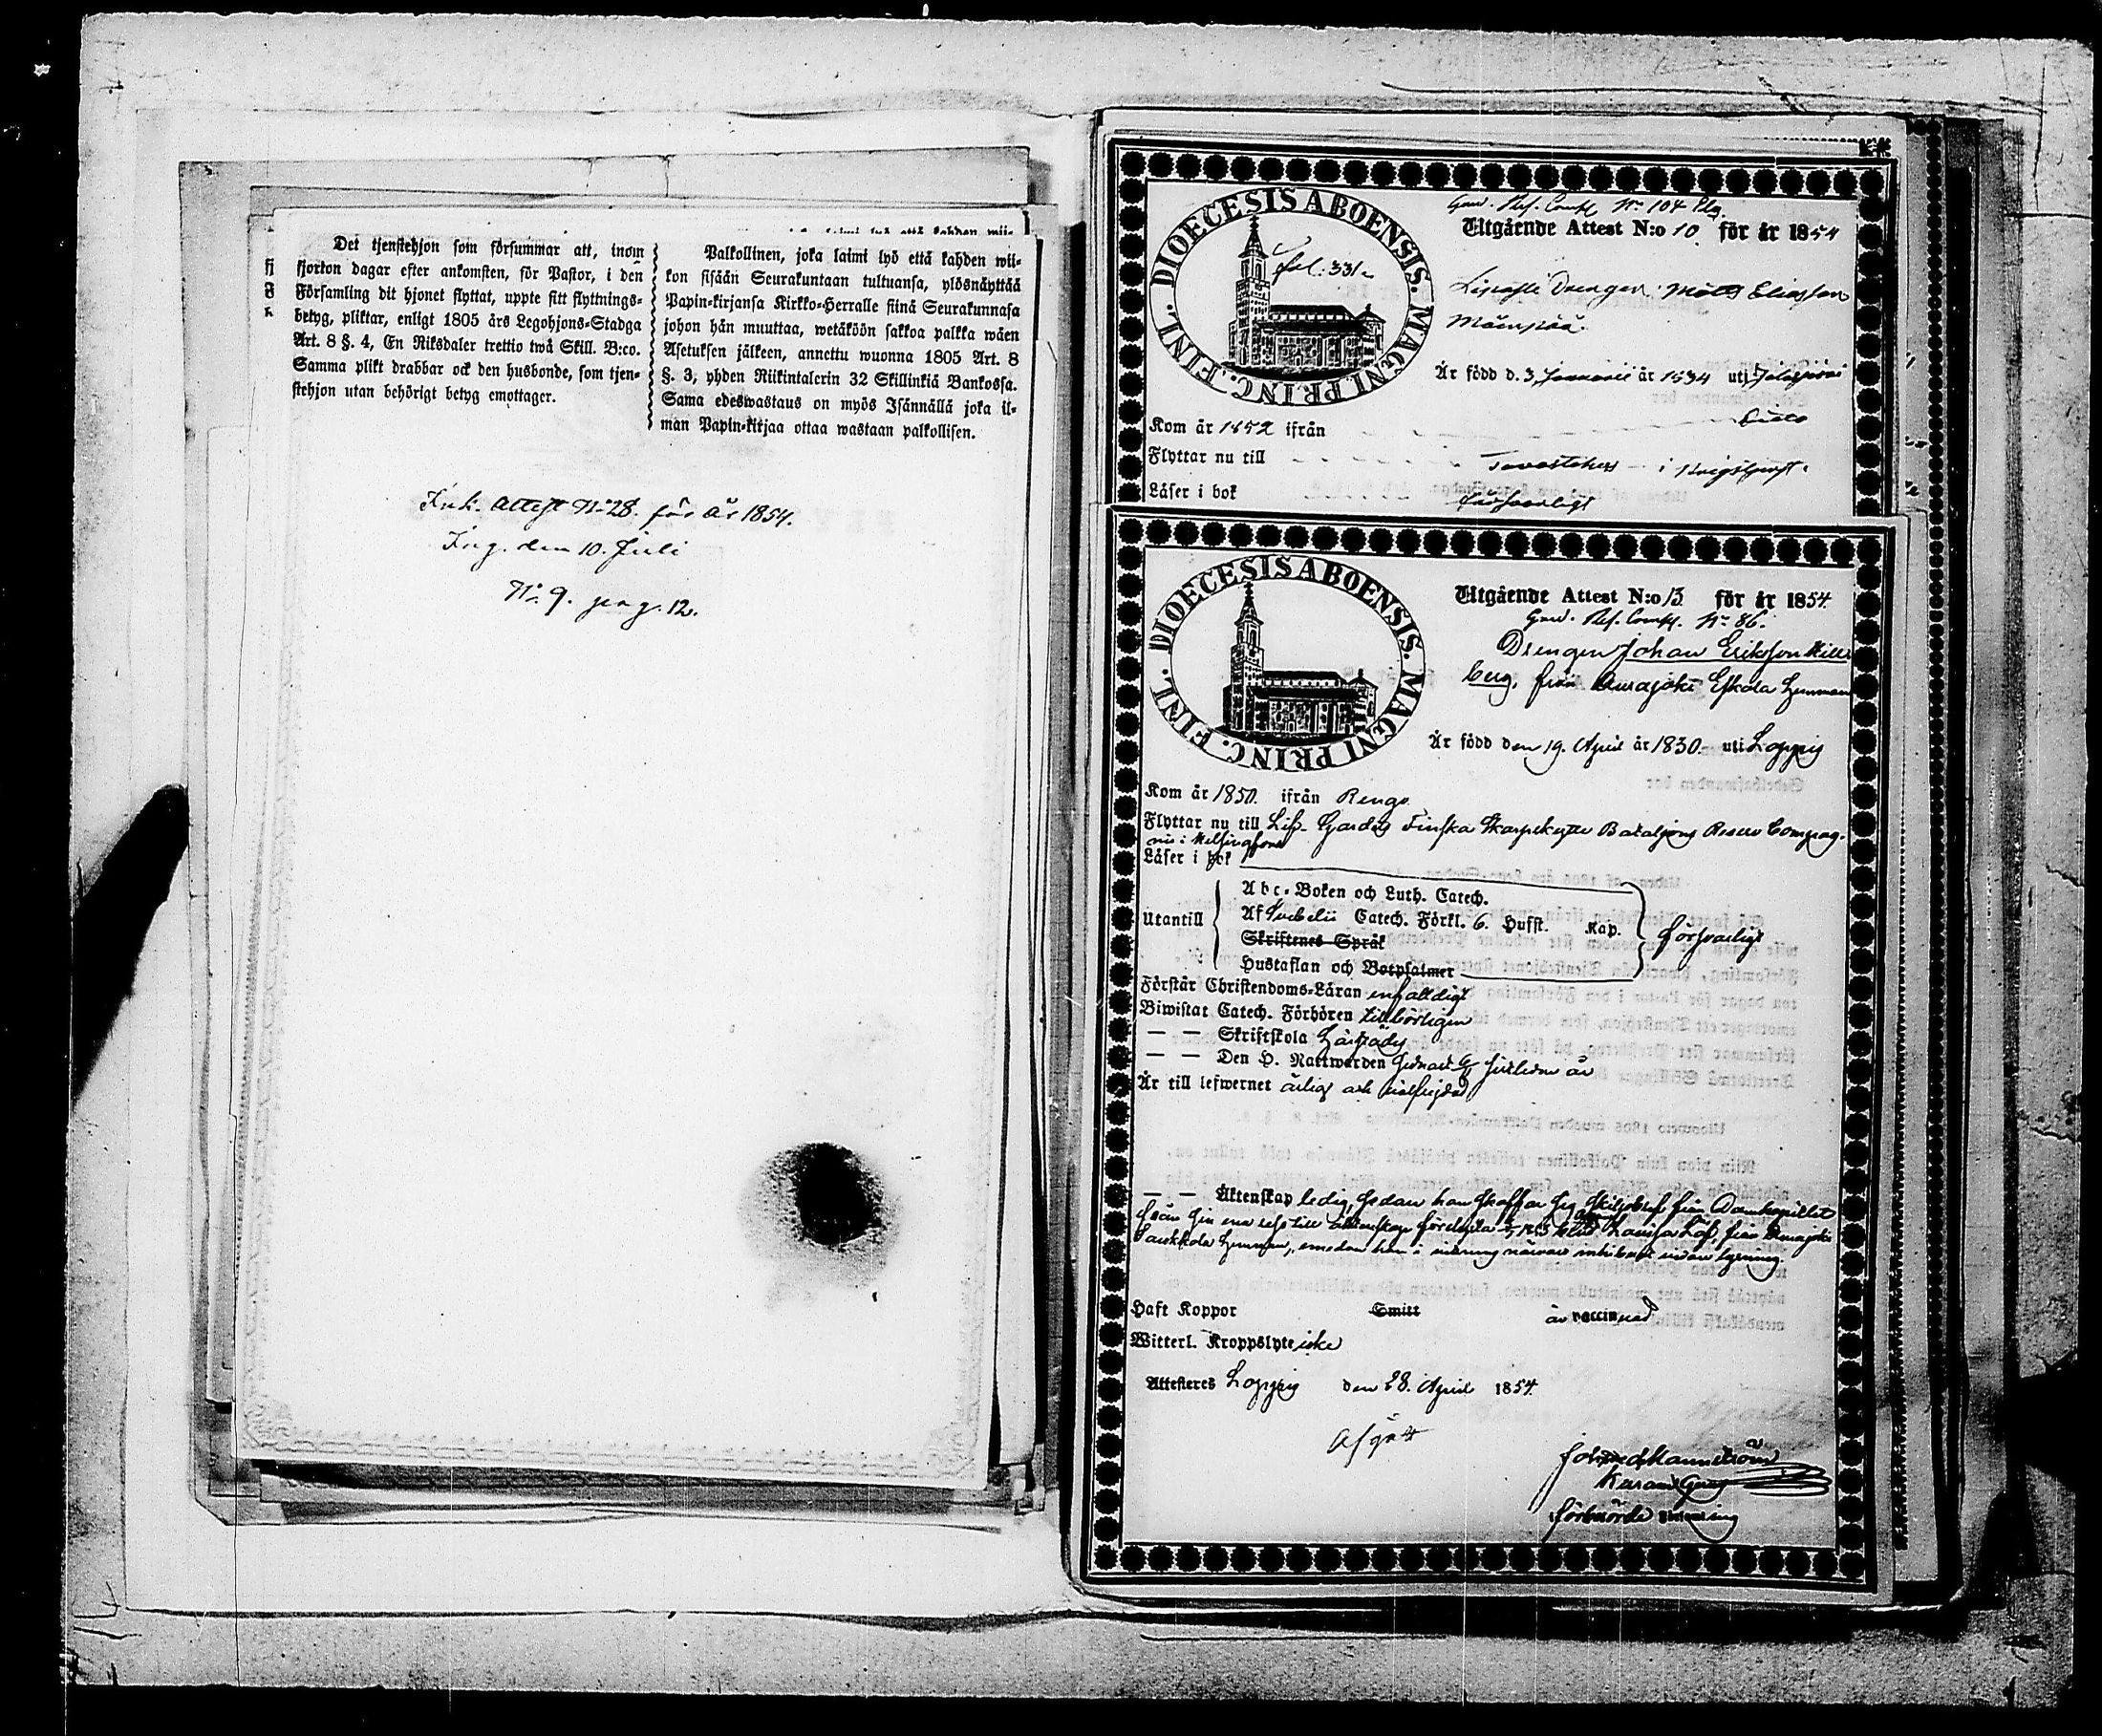 Det tjenstehjon som försummar att, inom
fjorton dagar efter ankomsten, för Pastor, i den
Församling dit hjonet flyttat, uppte sitt flyttnings-
betyg, pliktar, enligt 1805 års Legohjons-Stadga
Art. 8 §. 4, En Riksdaler trettio twå Skill. B:co.
Samma plikt drabbar ock den husbonde, som tjen-
stehjon utan behörigt betyg emottager.
Palkollinen, joka laimi lyö että kahden wii-
kon sisään Seurakuntaan tultuansa, ylösnäyttää
Papin-kirjansa Kirkko-Herralle siinä Seurakunnasa
johon hän muuttaa, wetäköön sakkoa palkka wäen
Asetuksen jälkeen, annettu wuonna 1805 Art. 8
§. 3, yhden Riikintalerin 32 Skillinkiä Bankossa.
Sama edeswastaus on myös Isännällä joka il-
man Papin-kirjaa ottaa wastaan palkollisen.
Ink. Attest No 28. för år 1854.
Ing. den 10. Juli
No 9. pag. 12.
DIOECESIS ABOENSIS. MAGNI PRINC. FINL.
Fol: 331
Utgående Attest N:o 10 för år 1854
Drengen Matts Eliasson
Är född d. 3 Januarii år 1834 uti
Kom år 1852 ifrån
Flyttar nu till Tavastehus i Krigstjenst.
Läser i bok försvarligt
DIOECESIS ABOENSIS. MAGNI PRINC. FINL.
Utgående Attest N:o 13 för år 1854.
No 86.
Drengen Johan Eriksson
berg, från Eskola hemman
Är född den 19. April år 1830. uti Loppis
Kom år 1850. ifrån Rengo
Flyttar nu till Lif-Gardes Finska Skarpskytte Bataljons Reserv Compag-
nie i Helsingfors
Läser i bok
Utantill
Abc-Boken och Luth. Catech.
Af Svebelii Catech. Förkl. 6. Hufst. Kap.
Skriftenes Språk
Hustaflan och Botpsalmer
försvarligt
Förstår Christendoms-Läran enfaldigt
Biwistat Catech. Förhören tillbörligen
— — Skriftskola
— — Den H. Nattwarden år
Är till lefwernet ärlig och välfrejdad
— — Äktenskap ledig, sedan han skaffar sig Skiljobref från Domkapitlet
från sin till äktenskap Lovisa Löf, från
hemman, emedan han i lysning.
Haft Koppor Smitt är vaccinerad
Witterl. Kroppslyte icke
Attesteres Loppis den 28. April 1854.